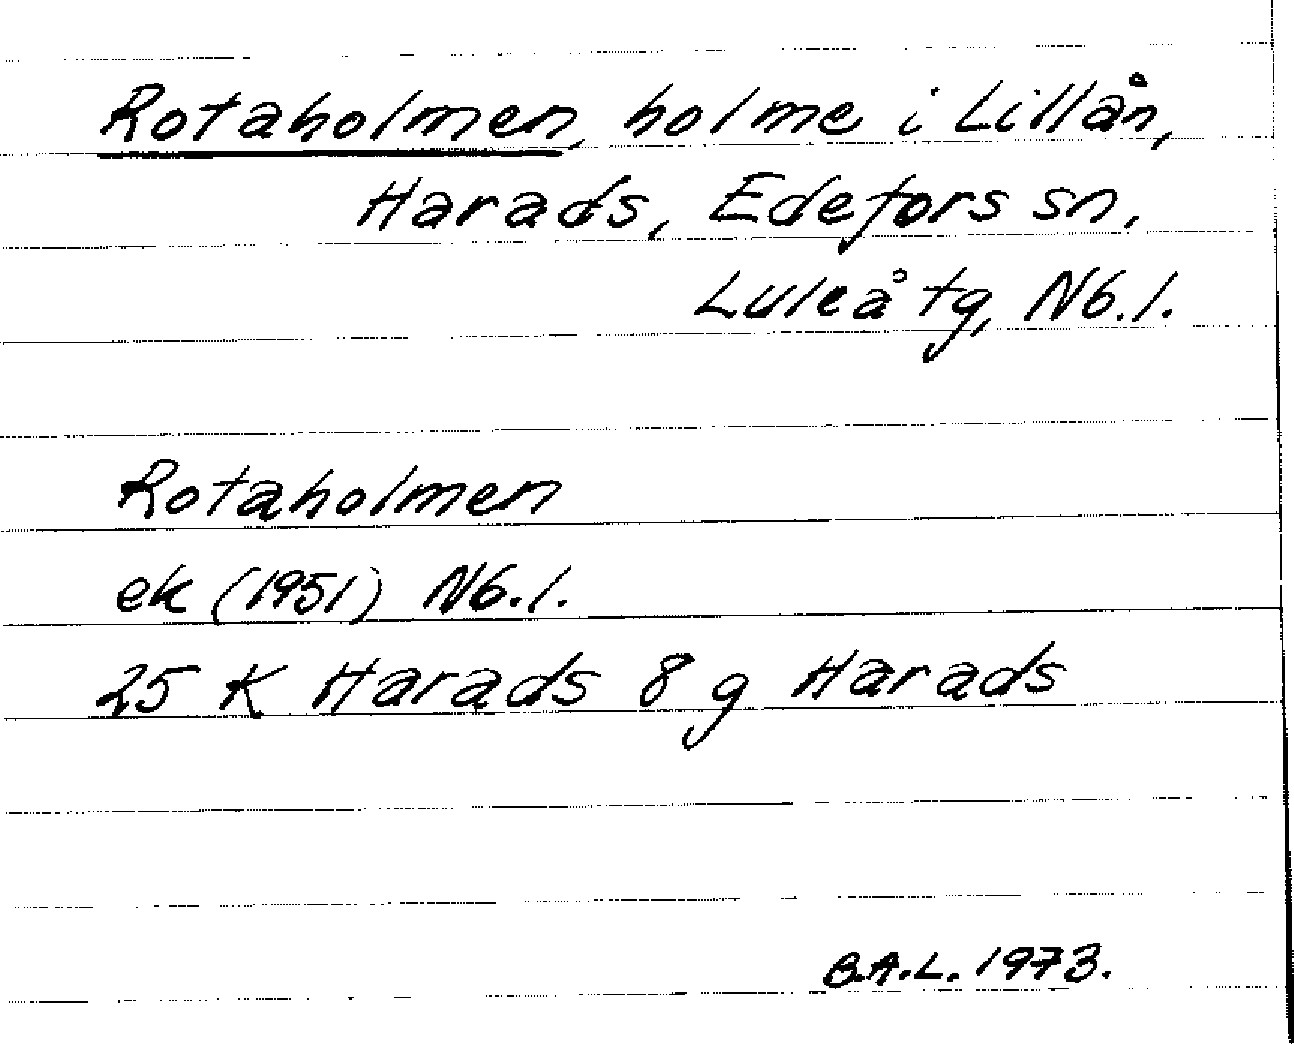 Rotaholmen, holme i Lillån,
Harads, Edefors sn,
Luleå tg, Nb.l.
Rotaholmen
ek (1951) Nb.l.
25 K Harads 8 g Harads
B.A.L. 1973.